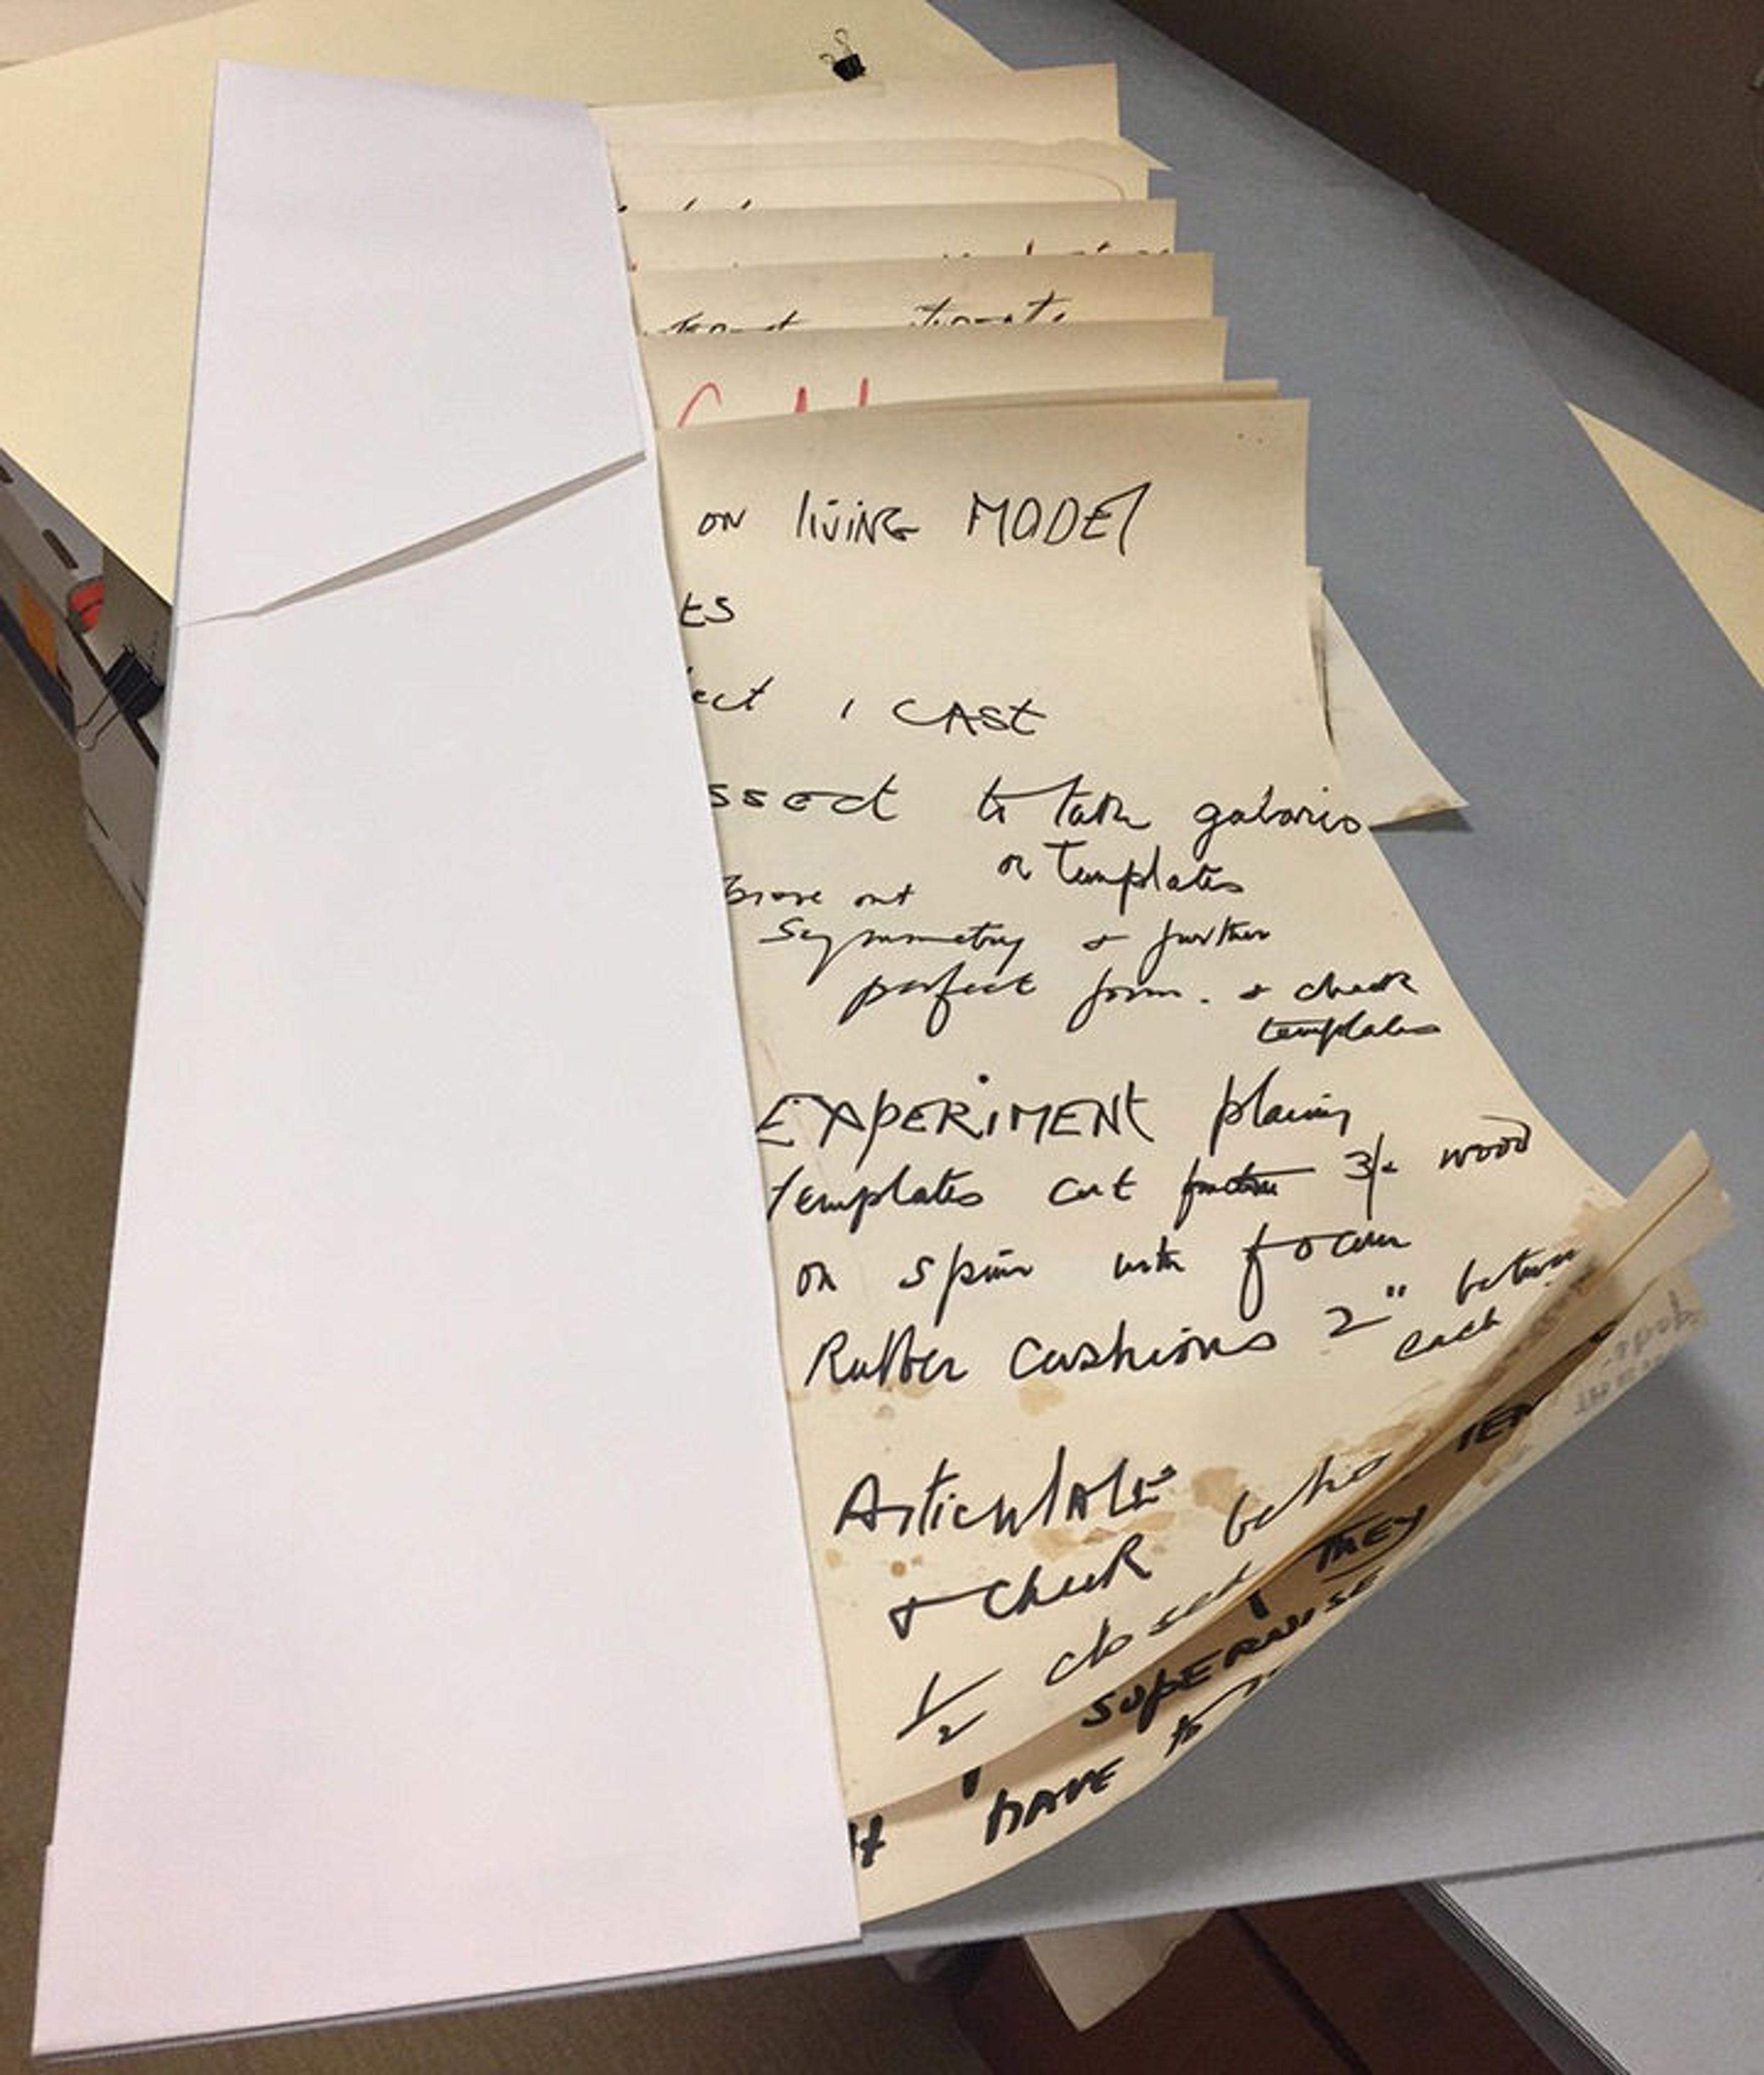 ON liviNG MODEl
ts
ect 1 CAst
ssect to take gabaris
or Templates
Prove out
Symmetry & further
perfect form. & check
templates
EXPERiMENt placing
templates cut 3/4 wood
on spine with foam
Rubber Cushions 2" between
each
ArticulAtE
& ChecK
1/2 closed THEY
SUPERVISE
HAVE to